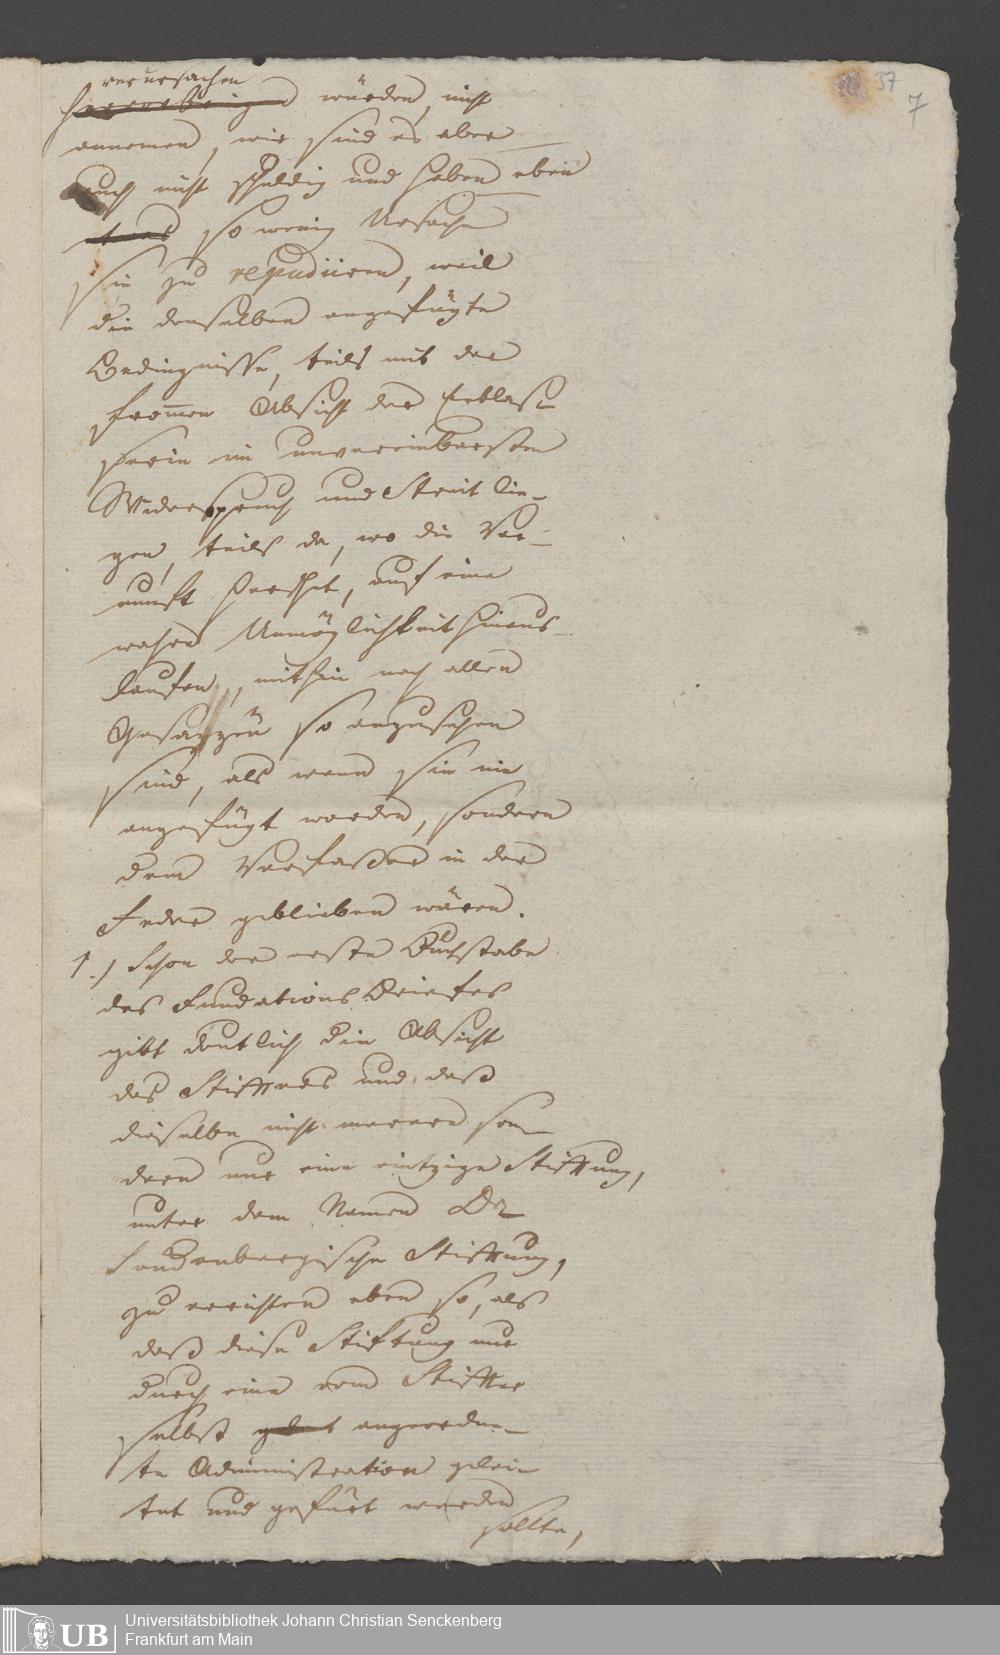 37
7
verursachen
hervorbringen würden, nicht
annemen, wir sind es aber
auch nicht schuldig und haben eben
so wenig Ursache
sie zu repudiiren, weil
die denselben angefügte
Bedingnisse, teils mit der
frommen Absicht der Erblas-
serin im unvereinbarsten
Widerspruch und Streit lie-
gen, teils da, wo die Ver-
nunft herschet, auf eine
wahre Unmöglichkeit hinaus-
laufen, mithin nach allen
Gesäzzen so anzusehen
sind, als wenn sie nie
angefügt worden, sondern
dem Verfaßer in der
Feder geblieben wären.
1.) Schon der erste Buchstabe
des Fundations Briefes
gibt deutlich die Absicht
des Stiffters und daß
dieselbe nicht merere son-
dern nur eine eintzige Stifftung,
unter dem Namen Dr
Senckenbergische Stifftung,
zu errichten eben so, als
daß diese Stiftung nur
durch eine vom Stiffter
selbst angeordne-
te Administration gelei-
tet und gefürt werden
sollte,
UB
Universitätsbibliothek Johann Christian Senckenberg
Frankfurt am Main